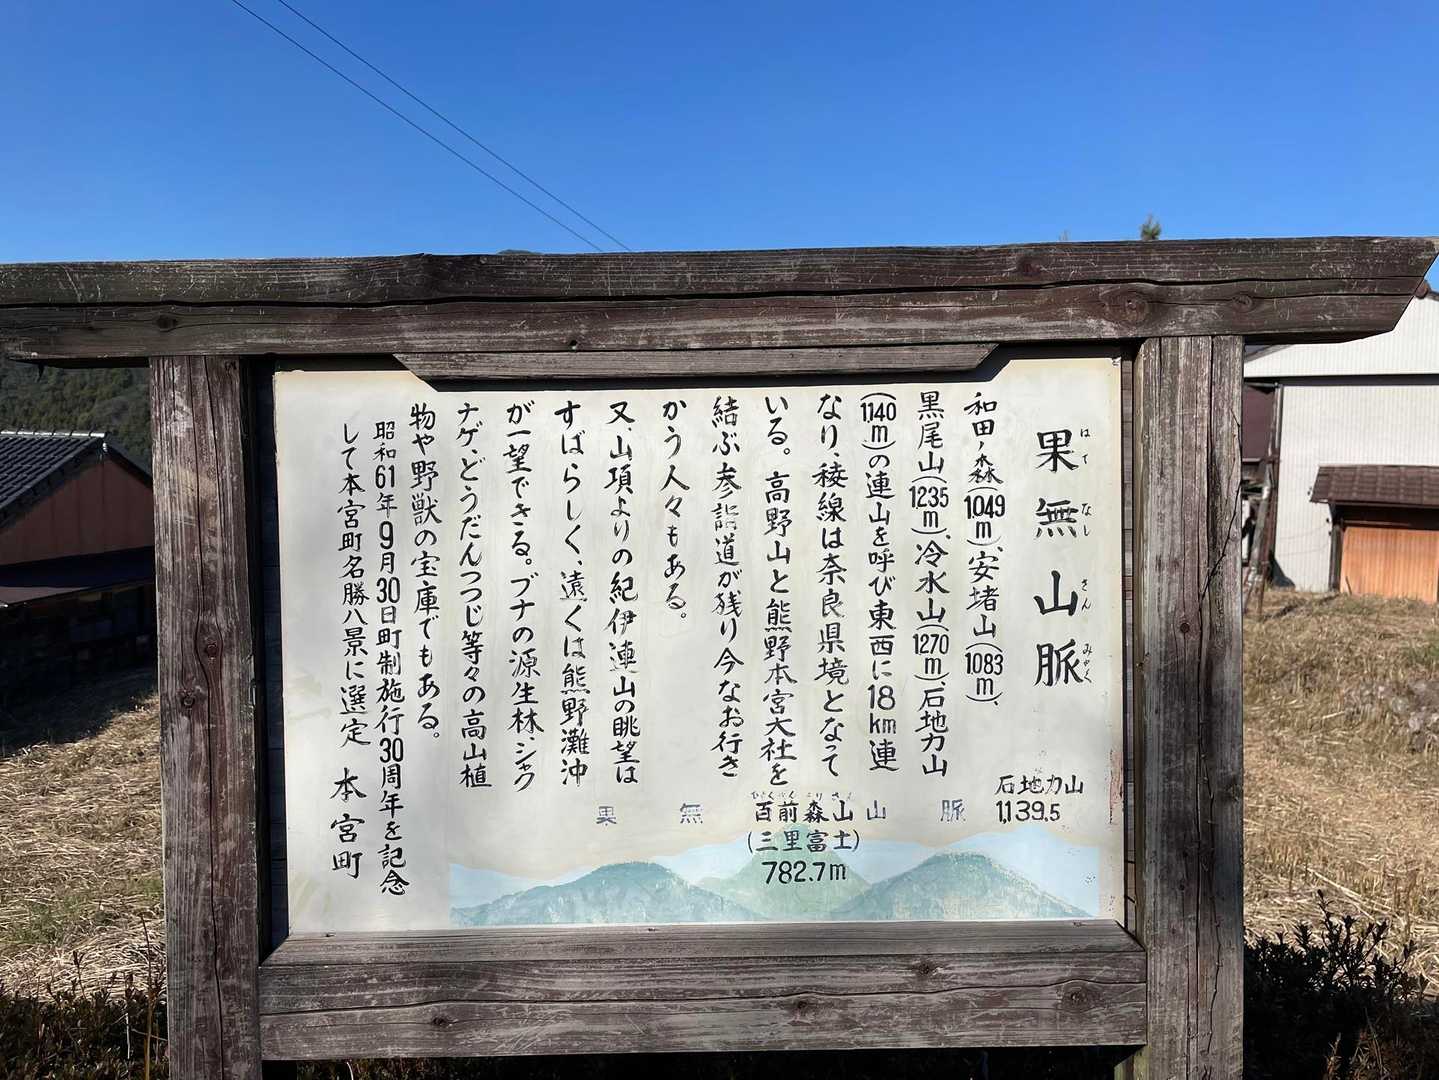 果無山脈
はてなしさんみゃく
和田ノ森(1049m)、安堵山(1083m)、
黒尾山(1235m)、冷水山(1270m)、石地力山
(1140m)の連山を呼び東西に18km連
なり、稜線は奈良県境となって
いる。高野山と熊野本宮大社を
結ぶ参詣道が残り今なお行き
かう人々もある。
又、山頂よりの紀伊連山の眺望は
すばらしく、遠くは熊野灘沖
が一望できる。ブナの源生林、シャク
ナゲ、どうだんつつじ等々の高山植
物や野獣の宝庫でもある。
昭和61年9月30日町制施行30周年を記念
して本宮町名勝八景に選定 本宮町
石地力山
1,139.5
果無山脈
百前森山
(三里富士)
782.7m